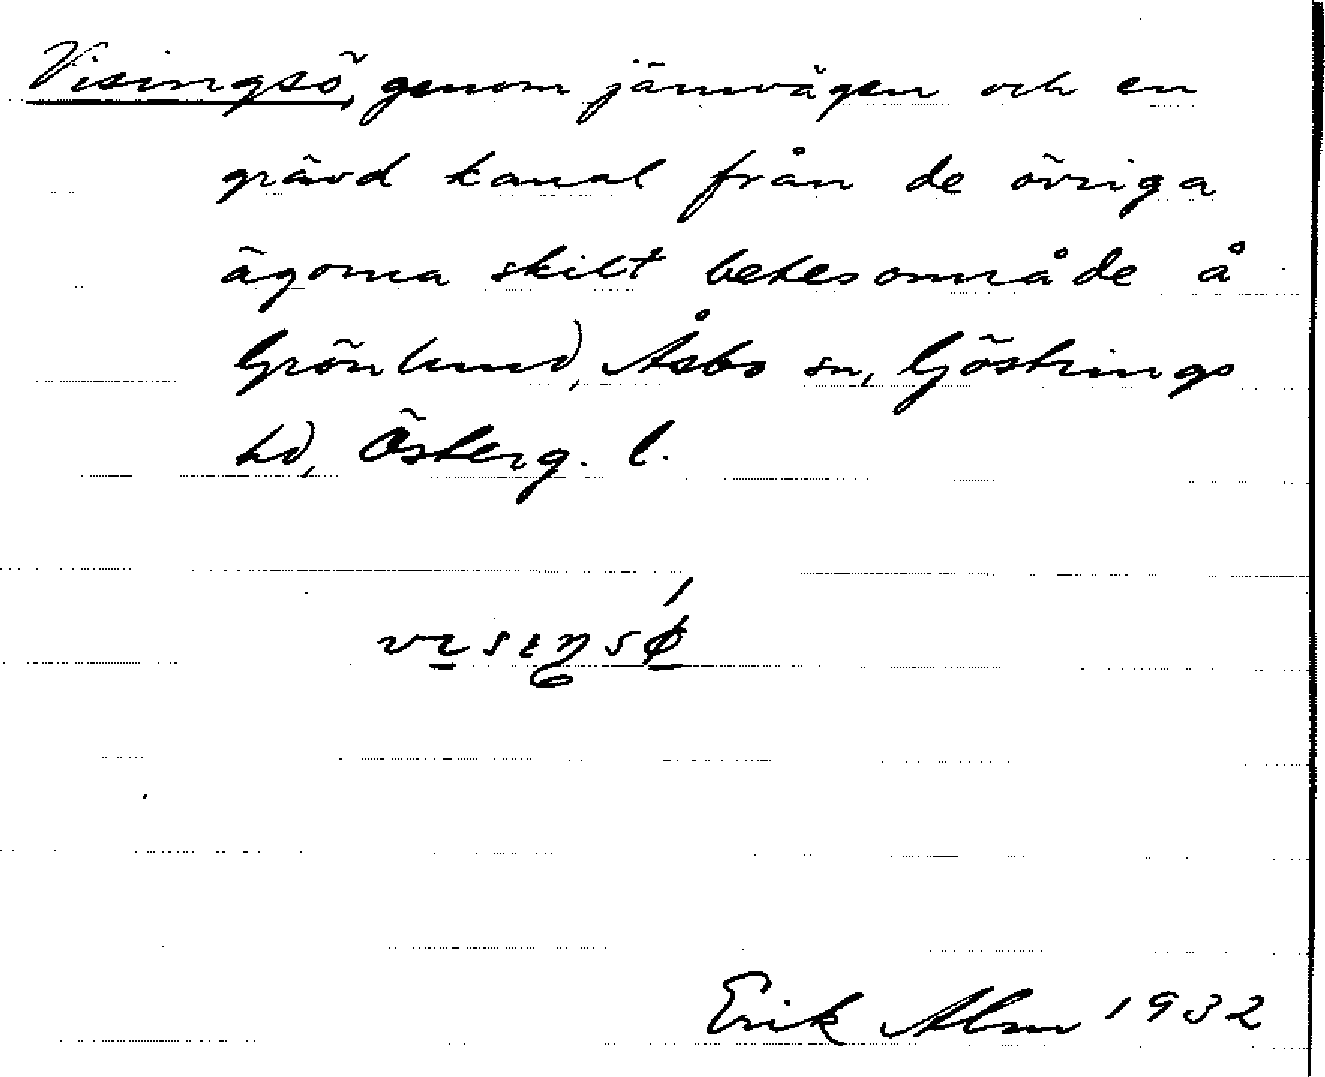 Visingsö, genom järnvägen och en
grävd kanal från de övriga
ägorna skilt betesområde å
Grönlund, Åsbo sn, Göstrings
hd, Österg. l.
Erik Alm 1932